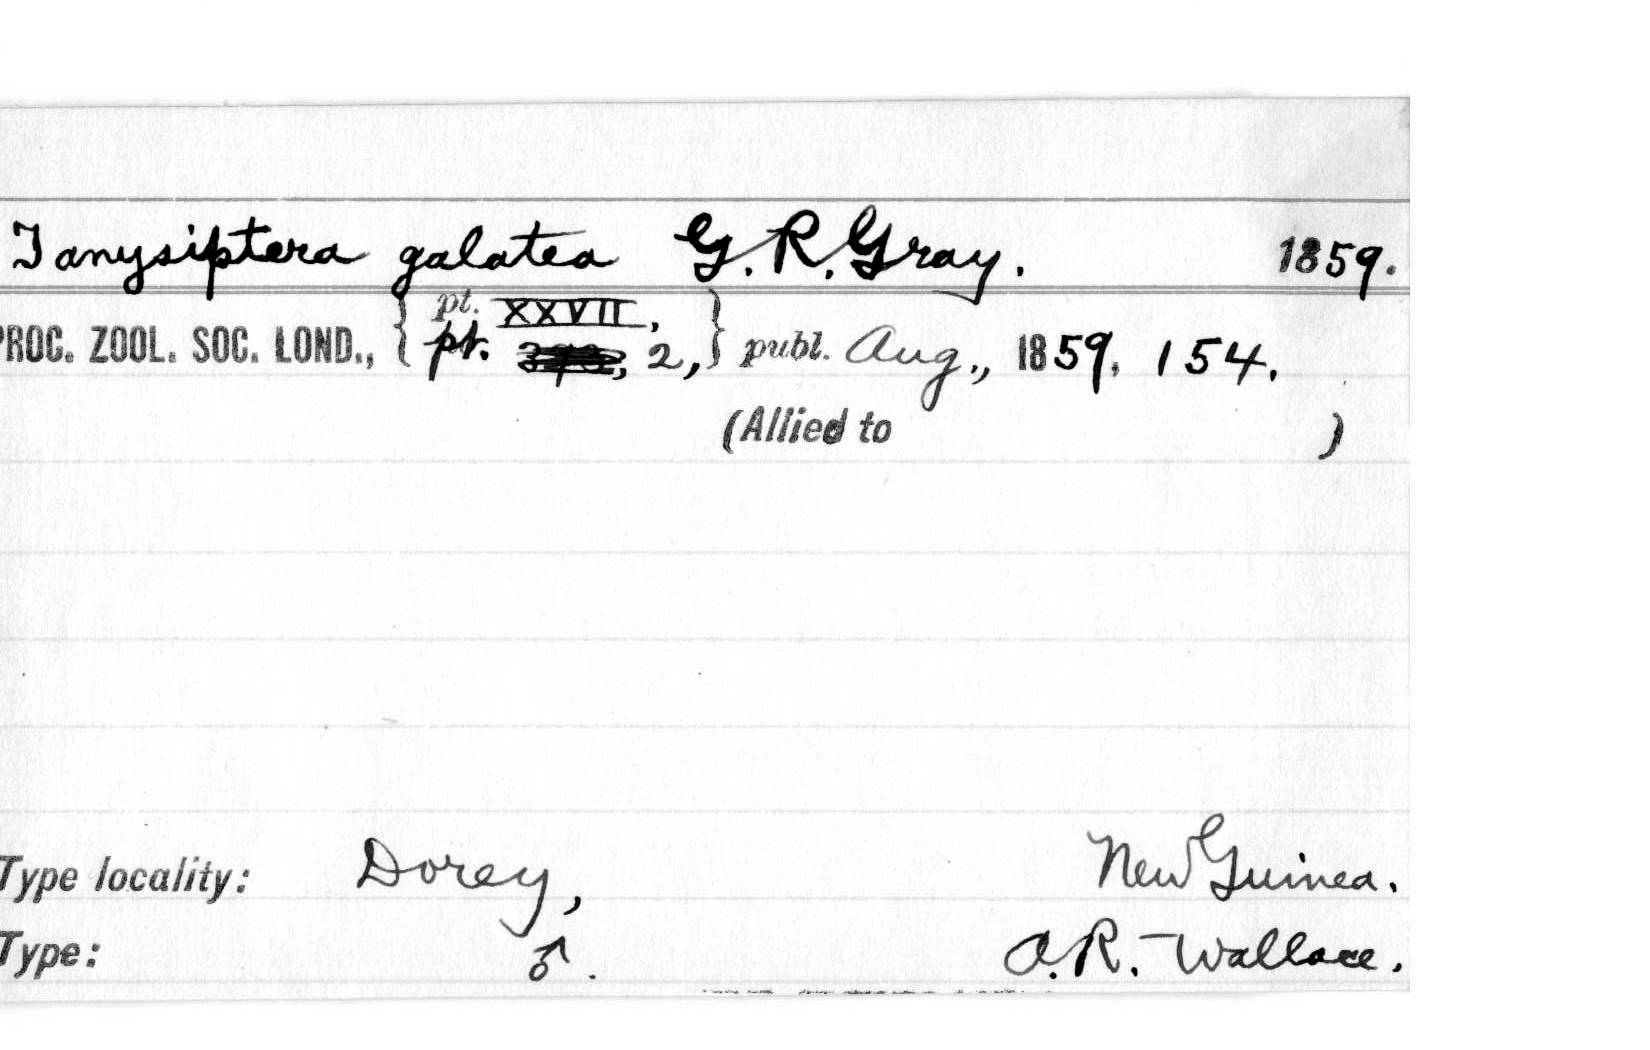 Tanysiptera galatea G. R. Gray. 1859.
PROC. ZOOL. SOC. LOND., { pt. XXVII,
pt. 2, } publ. Aug., 1859, 154.
(Allied to )
Type locality: Dorey, New Guinea.
Type: ♂. A. R. Wallace.